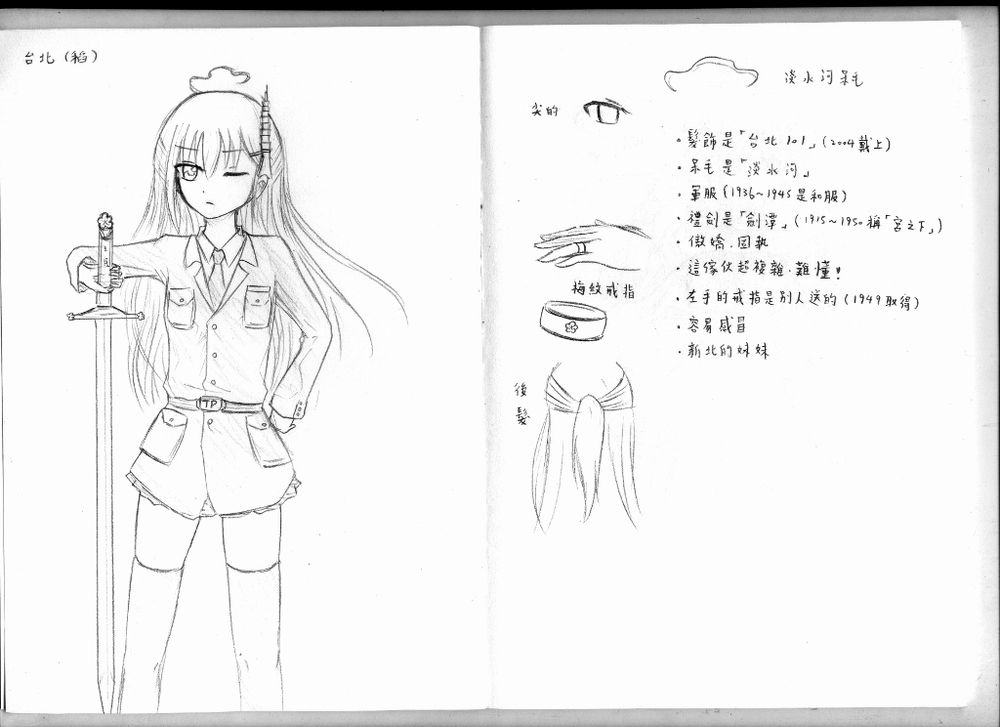 台北（稻）
TP
淡水河呆毛
尖的
・髮飾是「台北101」(2004戴上)
・呆毛是「淡水河」
・軍服(1936~1945是和服)
・禮劍是「劍潭」(1915~1950稱「宮之下」)
・傲嬌.固執
・這傢伙超複雜.難懂!
梅紋戒指
・左手的戒指是別人送的(1949取得)
・容易感冒
・新北的妹妹
後髮